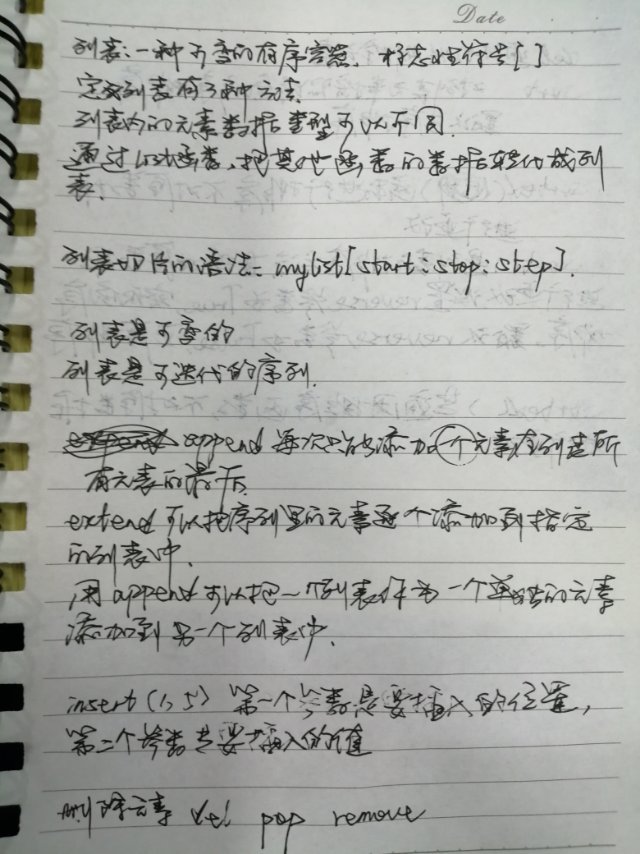 Date
列表:一种可变的有序容器. 标志性符号[ ]
定义列表有3种方法.
列表内的元素数据类型可以不同.
通过list函数,把其他函数的数据转化成列
表.
列表切片的语法= mylist[start:stop:step].
列表是可变的
列表是可迭代的序列.
append 每次只能添加一个元素在列表所
有元素的最后
extend 可以把序列里的元素逐个添加到指定
的列表中.
用append可以把一个列表作为一个单独的元素
添加到另一个列表中.
insert(1,5) 第一个参数是要插入的位置,
第二个参数是要插入的值
删除元素 del pop remove